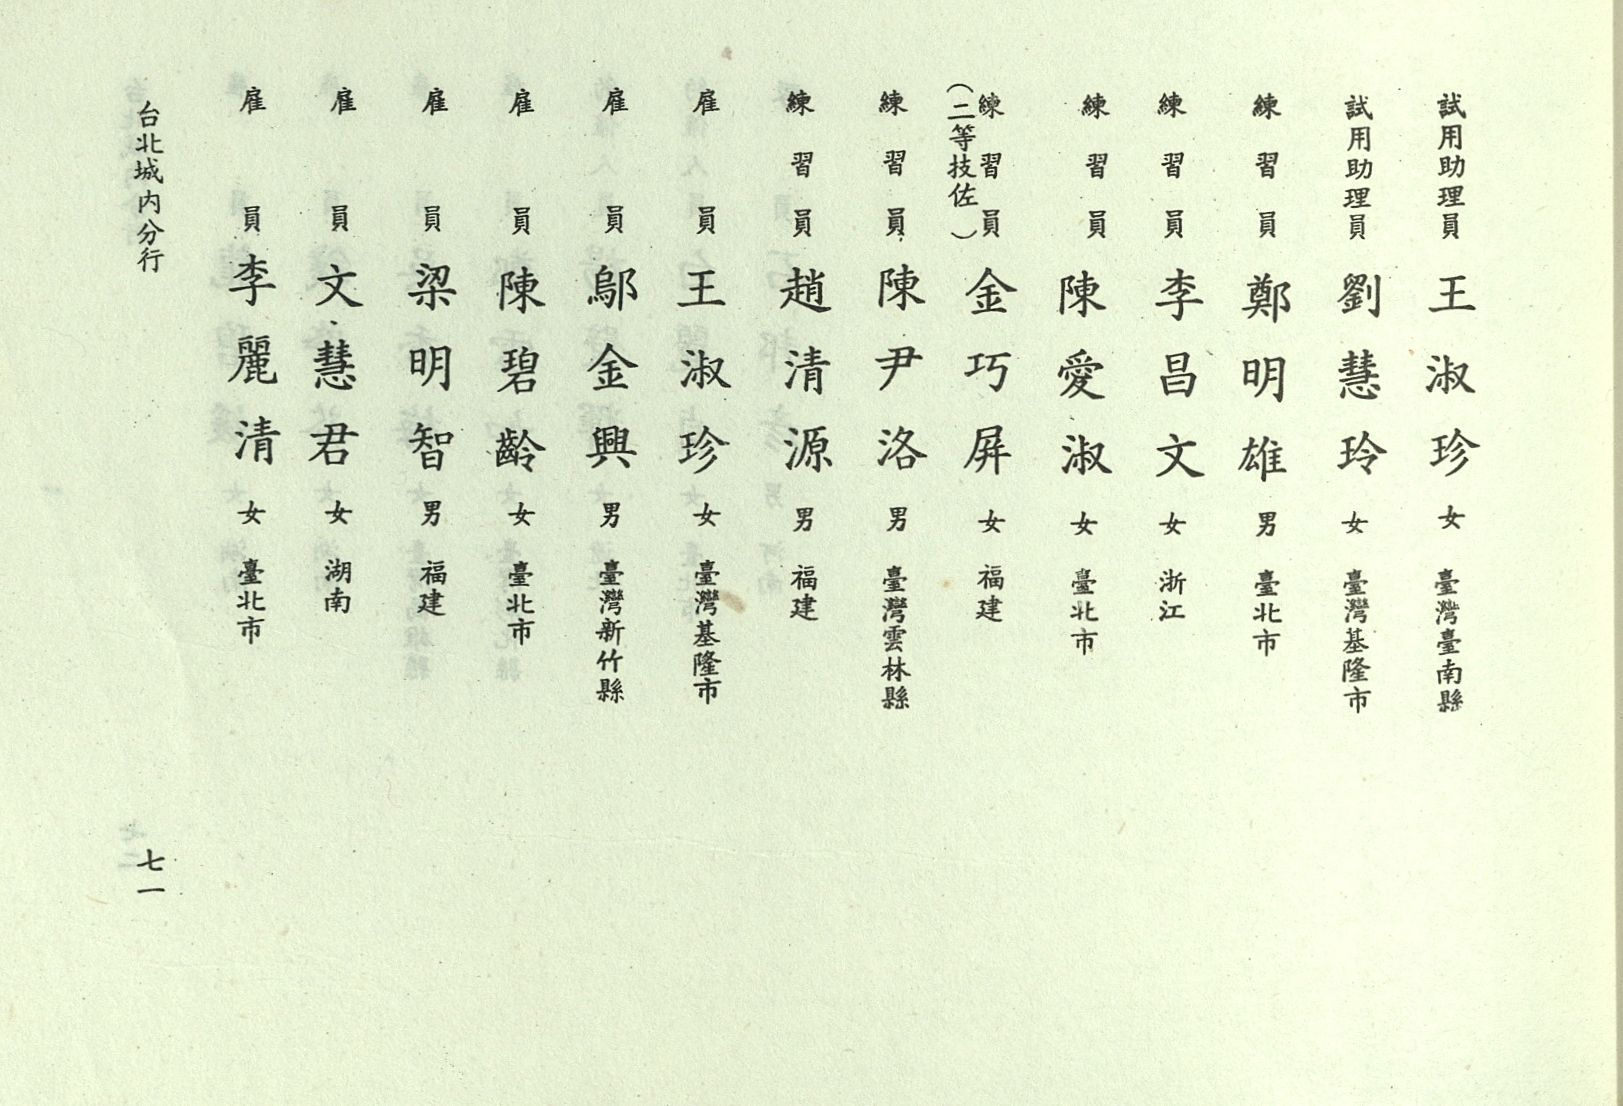 試用助理員 王淑珍 女 臺灣臺南縣
試用助理員 劉慧玲 女 臺灣基隆市
練習員 鄭明雄 男 臺北市
練習員 李昌文 女 浙江
練習員 陳愛淑 女 臺北市
練習員 金巧屏 女 福建
（二等技佐）
練習員 陳尹洛 男 臺灣雲林縣
練習員 趙清源 男 福建
雇員 王淑珍 女 臺灣基隆市
雇員 鄔金興 男 臺灣新竹縣
雇員 陳碧齡 女 臺北市
雇員 梁明智 男 福建
雇員 文慧君 女 湖南
雇員 李麗清 女 臺北市
台北城内分行
七一